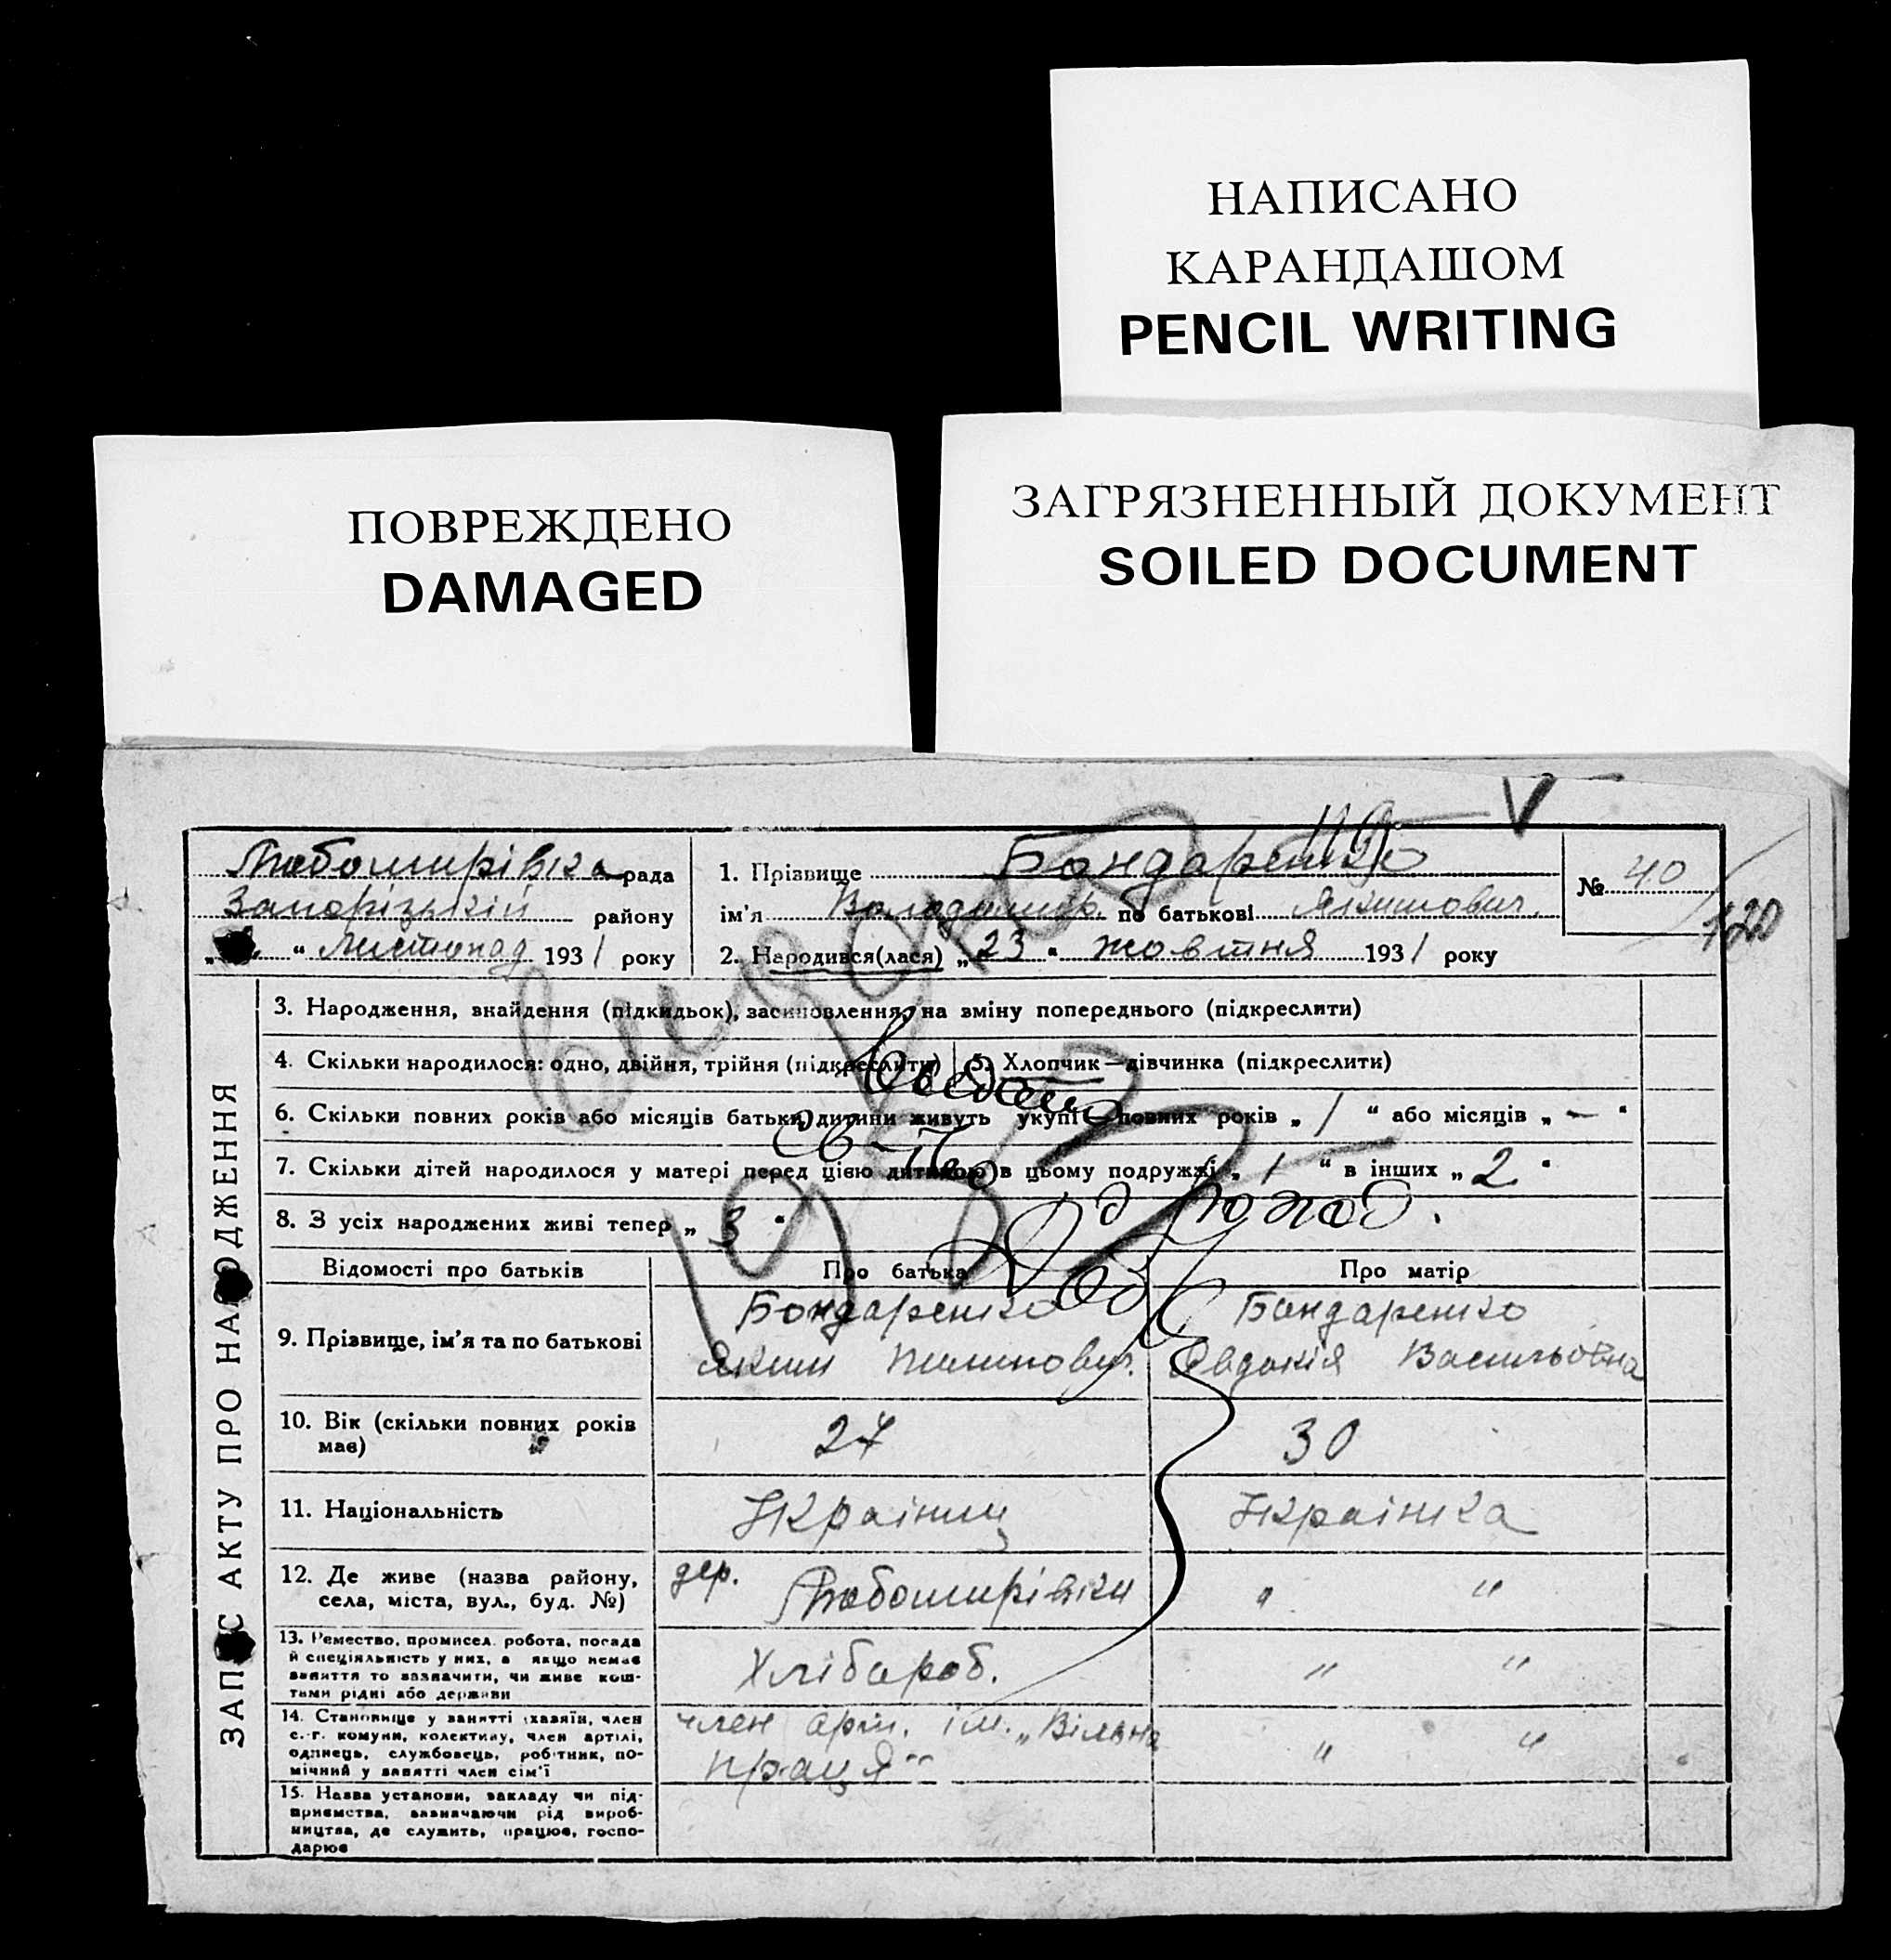 НАПИСАНО
КАРАНДАШОМ
PENCIL WRITING
ПОВРЕЖДЕНО
DAMAGED
ЗАГРЯЗНЕННЫЙ ДОКУМЕНТ
SOILED DOCUMENT
119. V
Любомирівка рада
Запорізький району
" " Листопад 1931 року
1. Прізвище Бондаренко
ім'я Володимир по батькові Якимович.
2. Народився(лася) „23" жовтня 1931 року
№ 40
120
ЗАПИС АКТУ ПРО НАРОДЖЕННЯ
3. Народження, знайдення (підкидьок), засиновлення, на зміну попереднього (підкреслити)
4. Скільки народилося: одно, двійня, трійня (підкреслити) 5. Хлопчик—дівчинка (підкреслити)
6. Скільки повних років або місяців батьки дитини живуть укупі — повних років „ 1 " або місяців „ — "
7. Скільки дітей народилося у матері перед цією дитиною в цьому подружжі „ 1 " в інших „ 2 "
8. З усіх народжених живі тепер „ 3 "
Відомості про батьків Про батька Про матір
9. Прізвище, ім'я та по батькові
Бондаренко
Яким
Бондаренко
Евдокія Васильовна
10. Вік (скільки повних років
має)
27 30
11. Національність Українец Українка
12. Де живе (назва району,
села, міста, вул., буд. №)
дер. Любомирівки " "
13. Ремество, промисел, робота, посада
й спеціяльність у них, а якщо немає
заняття то зазначити, чи живе кош-
тами рідні або держави
Хлібароб. " "
14. Становище у занятті (хазяїн, член
с.-г. комуни, колективу, член артілі,
одинець, службовець, робітник, по-
мічний у занятті член сім'ї
член арт. ім. „Вільна
праця" " "
15. Назва установи, закладу чи під-
приємства, зазначаючи рід вироб-
ництва, де служить, працює, госпо-
дарює